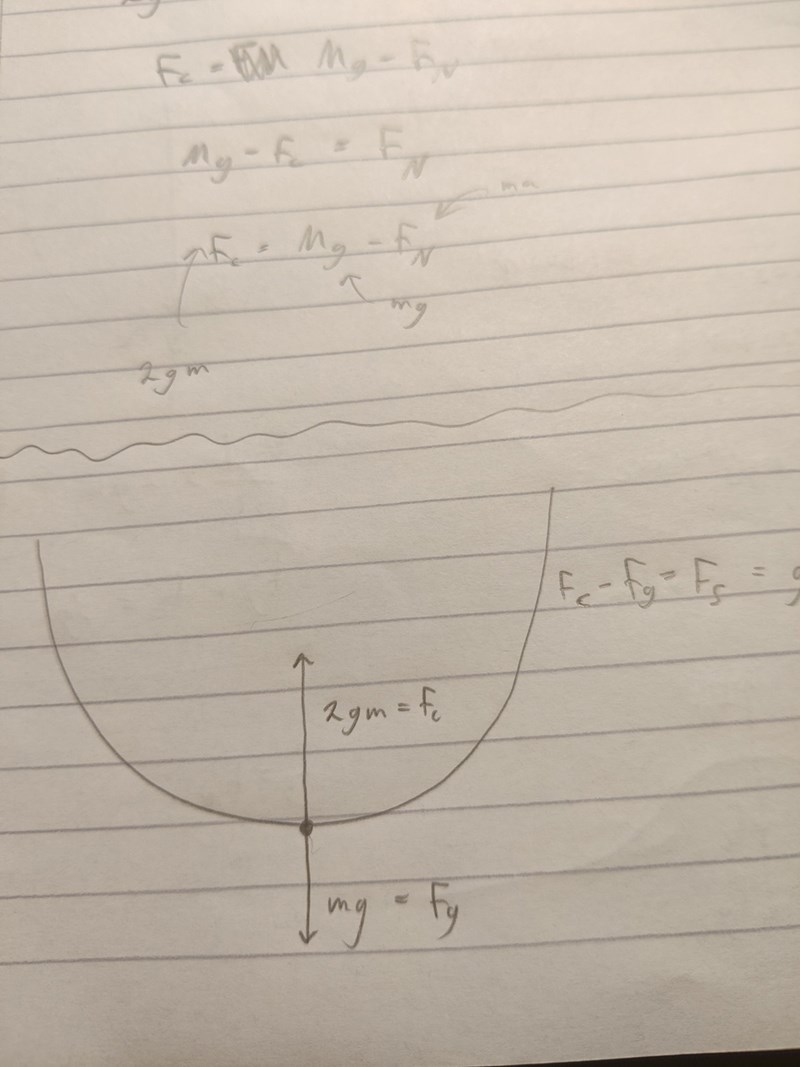 F_c = Mg - F_N
Mg - F_c = F_N
ma
F_c = Mg - F_N
mg
2gm
F_c - F_g = F_s = g
2gm = F_c
mg = F_g